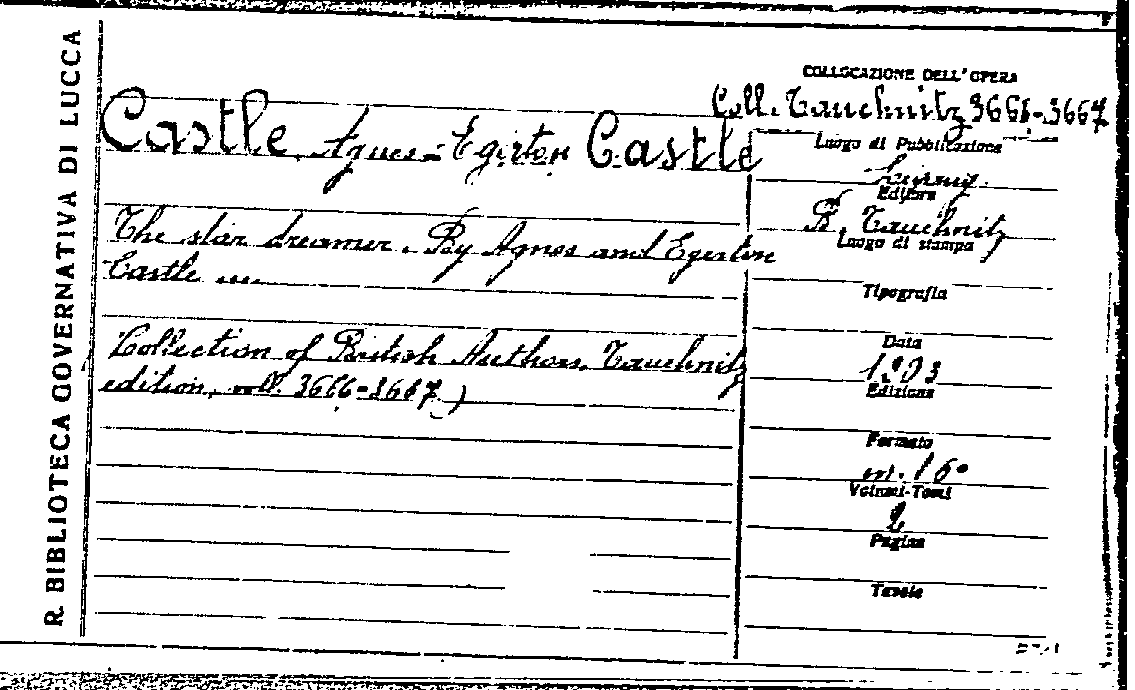 R. BIBLIOTECA GOVERNATIVA DI LUCCA
COLLOCAZIONE DELL'OPERA
Coll. Tauchnitz 3666-3667
Castle Agnes-Egerton Castle
Luogo di Pubblicazione
Leipzig
Editore
B. Tauchnitz
Luogo di stampa
The star dreamer. By Agnes and Egerton
Castle ...
Tipografia
Collection of British Authors, Tauchnitz
edition, vol. 3666-3667.)
Data
1903
Edizione
Formato
in. 16°
Volumi-Tomi
2
Pagine
Tavole